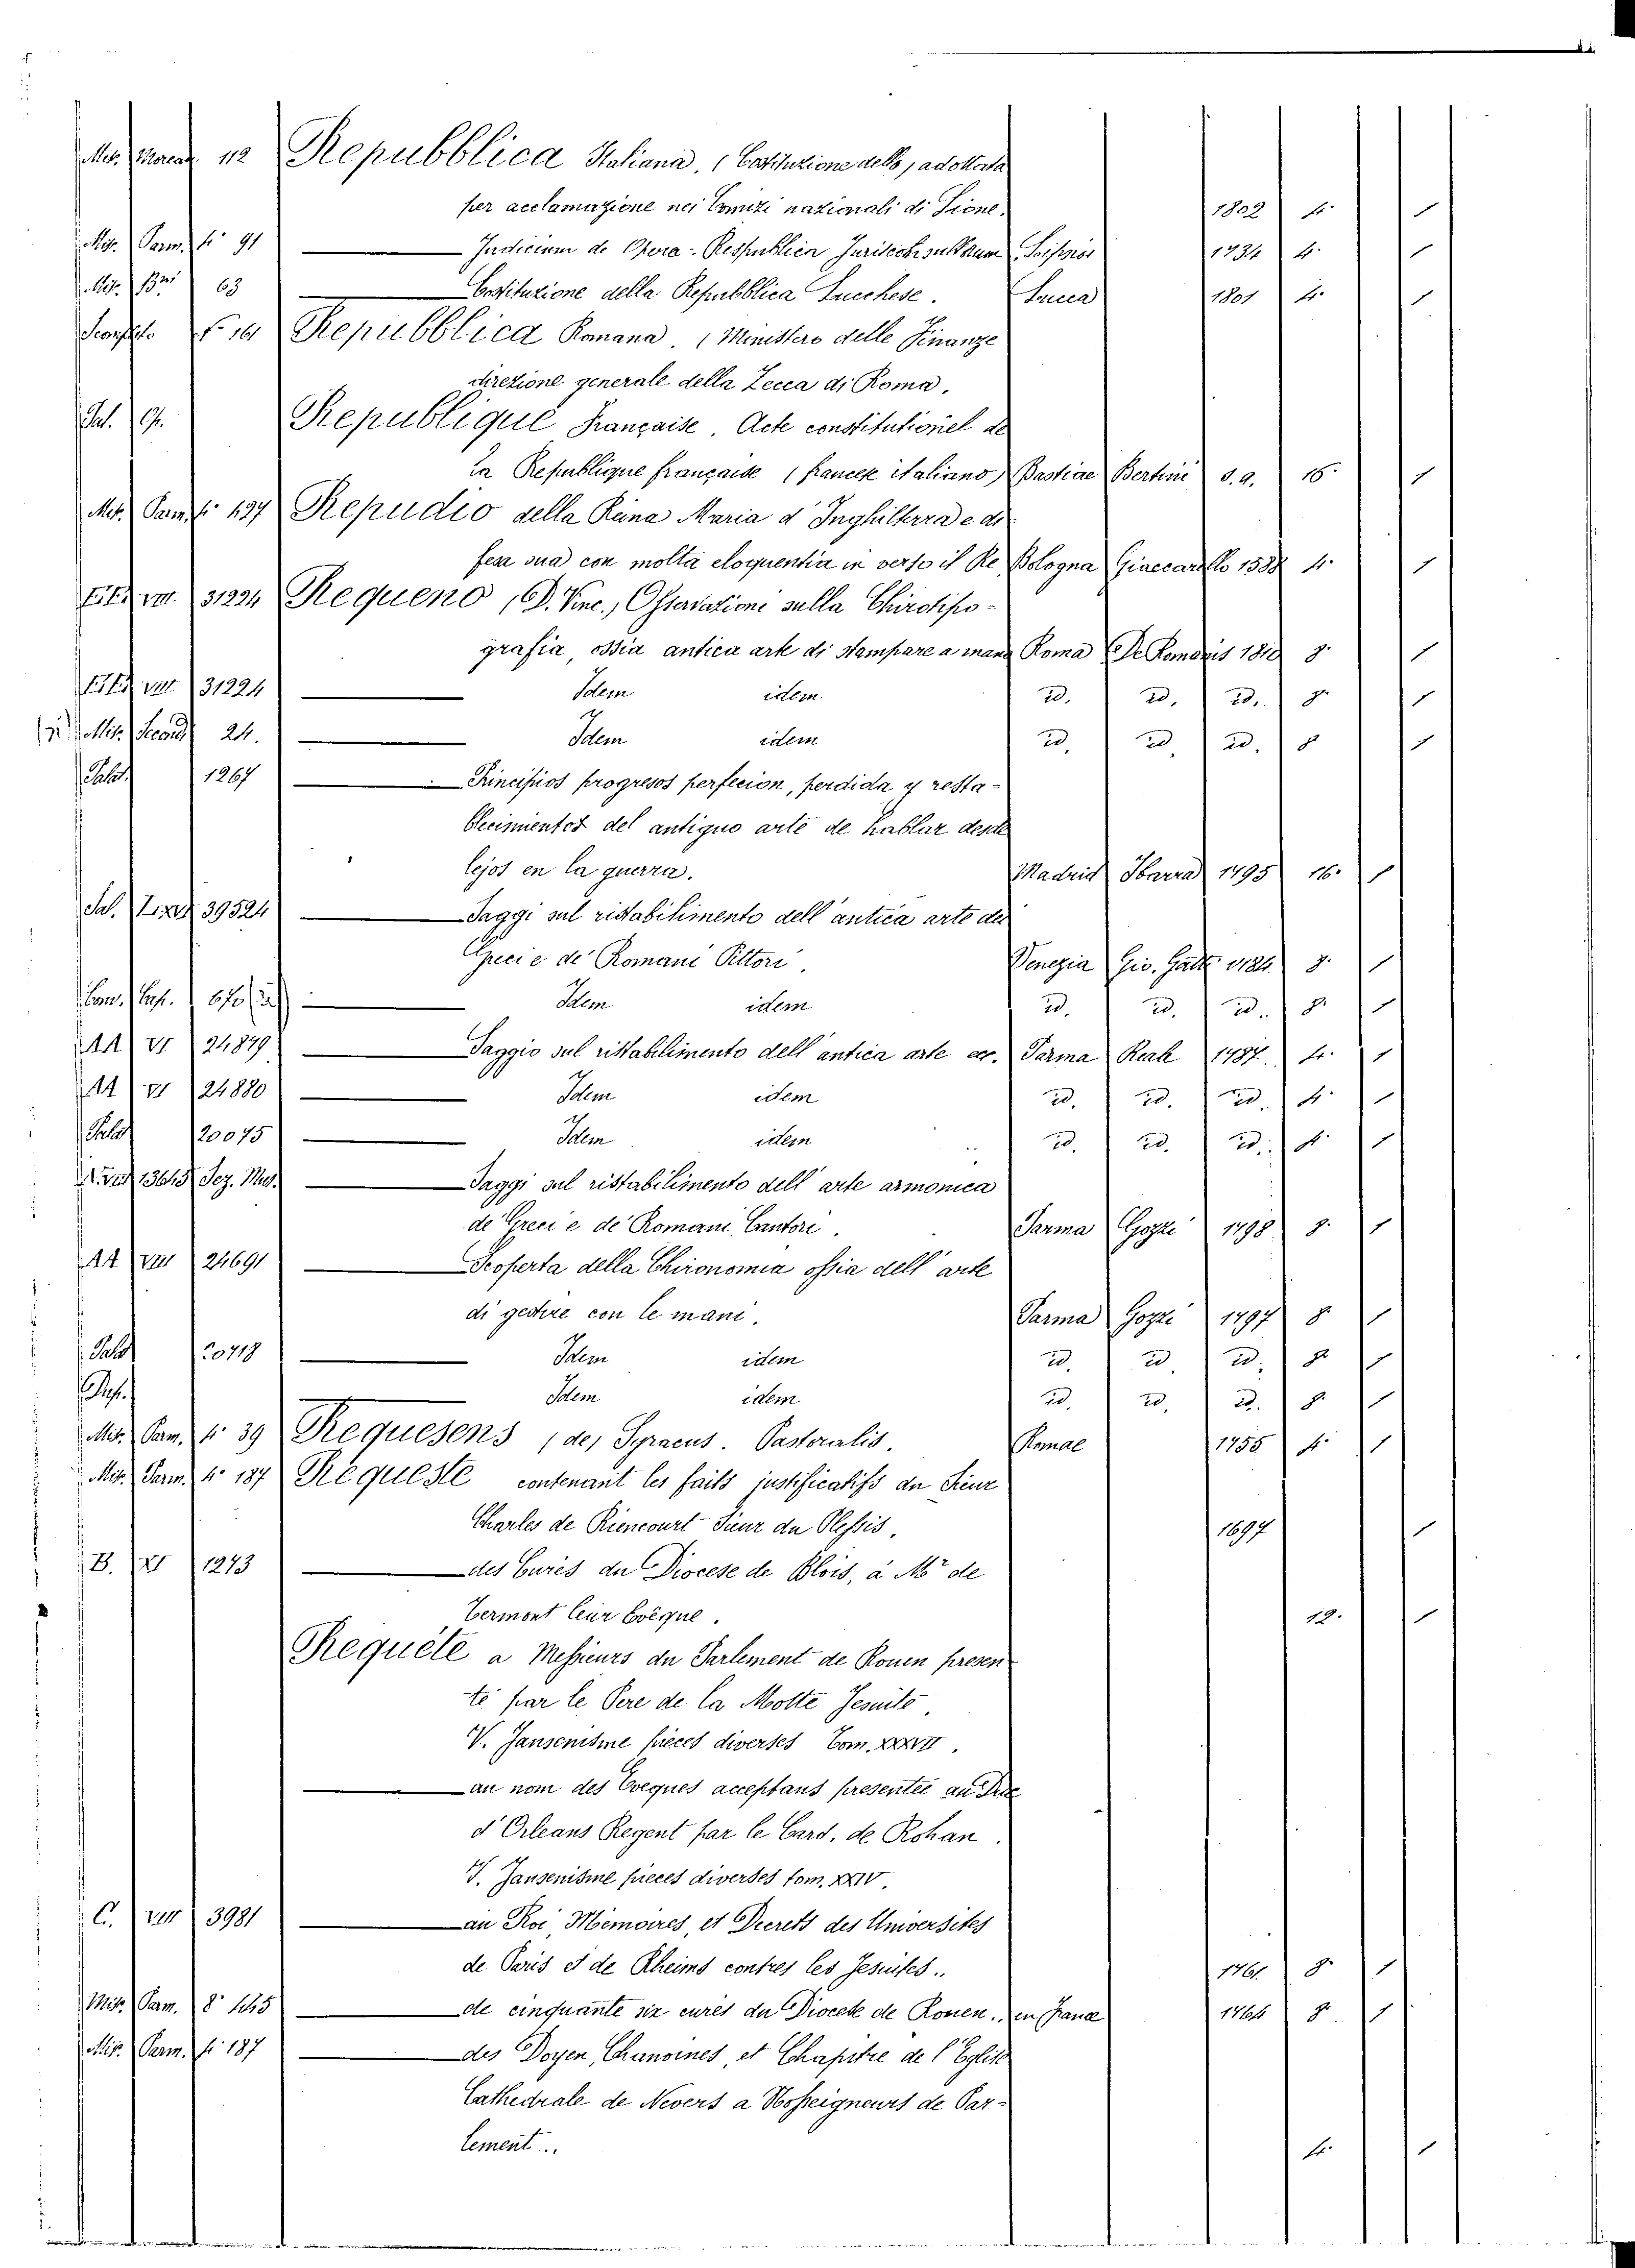 Mis. Morend. 112 Repubblica Italiana. (Costituzione della) adottata
per acclamazione nei Comizi nazionali di Lione. 1802 4° 1
Mis. Parm. 4° 91 Judicium de Opera: Respublica Jurisconsultorum Lipsiae 1734 4° 1
Mis. 63 Costituzione della Repubblica Lucchese. Lucca 1801 4° 1
Repubblica Romana. (Ministero delle Finanze
direzione generale della Zecca di Roma.
Republique Française. Acte constitutionel de
la Republique française (francese italiano) Bastiae Bertini s.a. 16° 1
Mis. Parm. 4° 137 Repudio della Reina Maria d'Inghilterra e di-
fesa sua con molta eloquentia in verso il Re Bologna Giaccarello 1558 4° 1
31224 Requeno, (D. Vinc.) Osservazioni sulla Chirotipo-
grafia, ossia antica arte di stampare a mano Roma De Romanis 1810 8° 1
31224 Idem idem id. id. id. 8° 1
Mis. Second. 24. Idem idem id. id. id. 8 1
Palat. 1267 Principios progresos perfecion, perdida y resta-
blecimientos del antiguo arte de hablar desde
lejos en la guerra. Madrid Ibarra 1795 16° 1
39524 Saggi sul ristabilimento dell'antica arte dei
Greci e de' Romani Pittori. Venezia Gio. Gatti 1784 8° 1
Idem idem id. id. id. 8° 1
AA VI 24879 Saggio sul ristabilimento dell'antica arte ec. Parma Reale 1787. 4° 1
AA VI 24880 Idem idem id. id. id. 4° 1
Palat. 20075 Idem idem id. id. id. 4° 1
13645 Sez. Mus. Saggi sul ristabilimento dell'arte armonica
de' Greci e de' Romani Cantori. Parma Gozzi 1798 8° 1
AA VIII 24691 Scoperta della Chironomia ossia dell'arte
di gestire con le mani. Parma Gozzi 1797 8° 1
Palat. 20718 Idem idem id. id. id. 8° 1
Idem idem id. id. id. 8° 1
Mis. Parm. 4° 39 Requesens (de) Syracus. Pastoralis. Romae 1755 4° 1
Mis. Parm. 4° 187 Requeste contenant les faits justificatifs du Sieur
Charles de Riencourt Sieur du Plessis. 1697 1
B. XI 1273 des Curés du Diocese de Blois, à Mr de
Termont leur Evêque. 12° 1
Requête a Messieurs du Parlement de Rouen presen-
té par le Pere de la Motte Jesuite.
V. Jansenisme pieces diverses Tom. XXXVII.
au nom des Eveques acceptans presentée au Duc
d'Orleans Regent par le Card. de Rohan.
V. Jansenisme pieces diverses tom. XXIV.
C. VIII 3981 au Roi, Mémoires, et Decrets des Universités
de Paris et de Rheims contres les Jesuites.. 1761. 8° 1
Mis. Parm. 8° 145 de cinquante six curés du Diocese de Rouen.. en France 1764 8° 1
Mis. Parm. 4° 187 des Doyen, Chanoines, et Chapitre de l'Eglise
Cathedrale de Nevers a Nosseigneurs de Par-
lement.. 4° 1